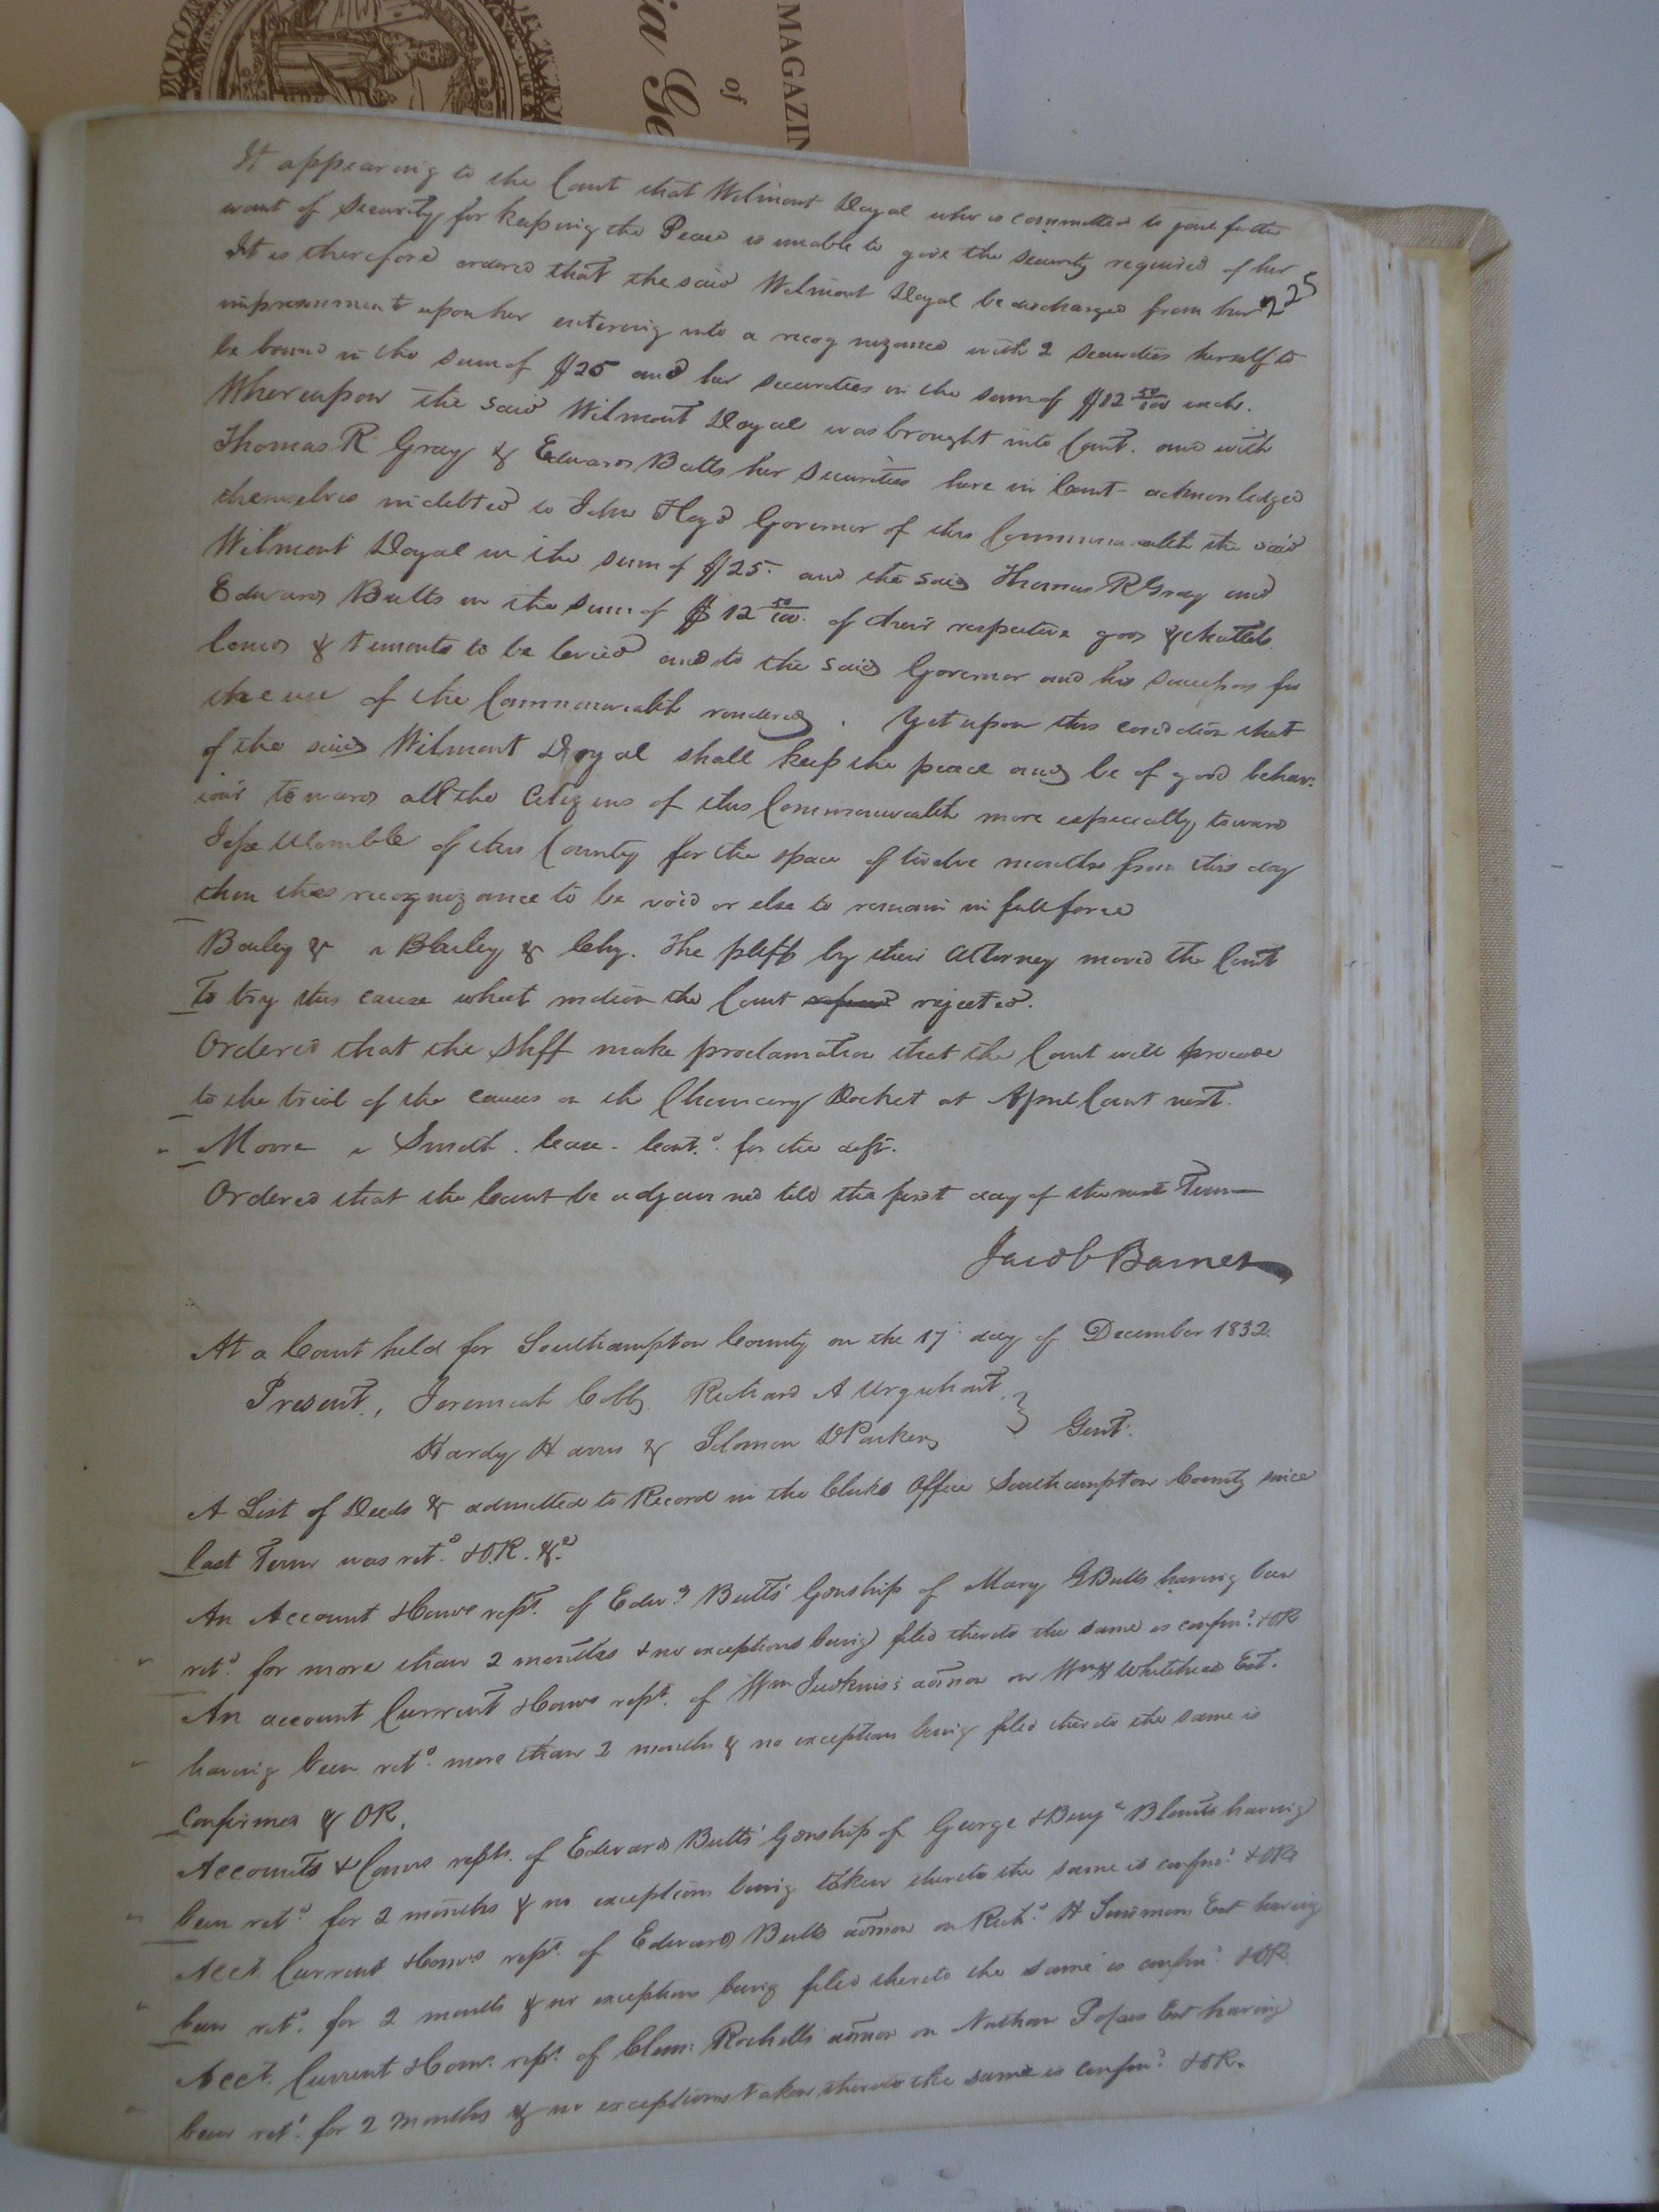 MAGAZIN
of
ia Ge
It appearing to the Court that Wilmout Doyal who is committed to jail for the
want of Security for keeping the Peace is unable to give the security required of her
225
It is therefore ordered that the said Wilmout Doyal be discharged from her
imprisonment upon her entering into a recognizance with 2 securities herself to
be bound in the sum of $25 and her securities in the sum of $12 50/100 each.
Whereupon the said Wilmout Doyal was brought into Court. and with
Thomas R Gray & Edward Butts her securities here in Court acknowledged
themselves indebted to John Floyd Governor of this Commonwealth the said
Wilmout Doyal in the sum of $25. and the said Thomas R Gray and
Edward Butts in the sum of $12 50/100. of their respective goods & chattels
lands & tenements to be levied and to the said Governor and his successors for
the use of the Commonwealth rendered. Yet upon this condition that
of the said Wilmout Doyal shall keep the peace and be of good behav-
iour towards all the Citizens of this Commonwealth more especially toward
Womble of this County for the space of twelve months from this day
then this recognizance to be void or else to remain in full force
& v & The pltff by their Attorney moved the Court
to try this cause which motion the Court rejected.
Ordered that the Shff make proclamation that the Court will proceed
to the trial of the causes on the Chancery Docket at April Court next.
Moore v Smith. Case - Cont.d for the deft.
Ordered that the Court be adjourned till the first day of the next Term
Jacob Barnes
At a Court held for Southampton County on the 17 day of December 1832.
Present, Jeremiah Cobb, Richard A Urquhart
Hardy Harris & Solomon D Parker } Gent.
A List of Deeds & admitted to Record in the Clerks Office Southampton County since
last Term was ret.d & O.R. &c.
An Account & Comrs rept. of Edwd Butts' Gdnship of Mary G Butts having been
retd. for more than 2 months & no exceptions being filed thereto the same is confmd. & OR
An account Current & Comrs rept. of Wm Judkins's admon on Wm H Whitehead Est.
having been retd. more than 2 months & no exceptions being filed thereto the same is
Confirmed & OR.
Accounts & Comrs repts. of Edward Butts' Gdnship of George & Benj Blounts having
been retd. for 2 months & no exceptions being taken thereto the same is confmd. & OR
Acct. Current & Comrs rept. of Edward Butts admon on Richd. H Simmons Est having
been retd. for 2 months & no exceptions being filed thereto the same is confmd. & OR.
Acct. Current & Comr. rept. of Clem: Rochelle admon on Nathan Popes Est having
been retd. for 2 months & no exceptions taken thereto the same is confmd. & OR.